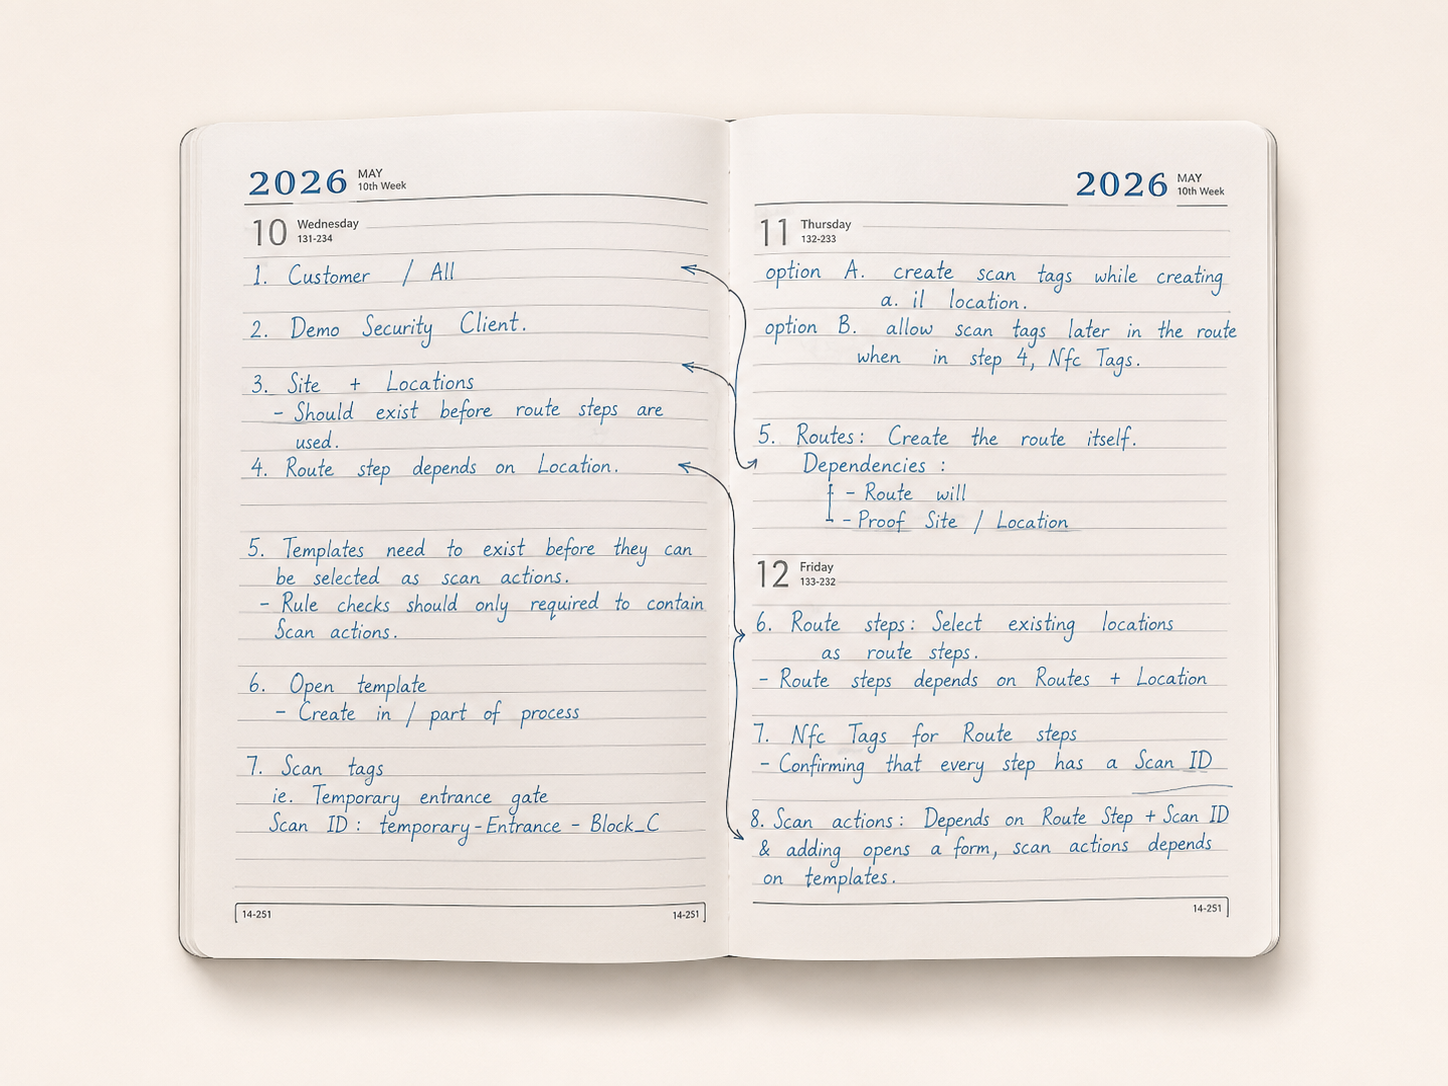 2026 MAY
10th Week
10 Wednesday
131-234
1. Customer / All
2. Demo Security Client.
3. Site + Locations
- Should exist before route steps are
used.
4. Route step depends on Location.
5. Templates need to exist before they can
be selected as scan actions.
- Rule checks should only required to contain
Scan actions.
6. Open template
- Create in / part of process
7. Scan tags
ie. Temporary entrance gate
Scan ID : temporary-Entrance - Block_C
14-251
14-251
2026 MAY
10th Week
11 Thursday
132-233
option A. create scan tags while creating
a. il location.
option B. allow scan tags later in the route
when in step 4, Nfc Tags.
5. Routes: Create the route itself.
Dependencies :
- Route will
- Proof Site / Location
12 Friday
133-232
6. Route steps: Select existing locations
as route steps.
- Route steps depends on Routes + Location
7. Nfc Tags for Route steps
- Confirming that every step has a Scan ID
8. Scan actions: Depends on Route Step + Scan ID
& adding opens a form, scan actions depends
on templates.
14-251